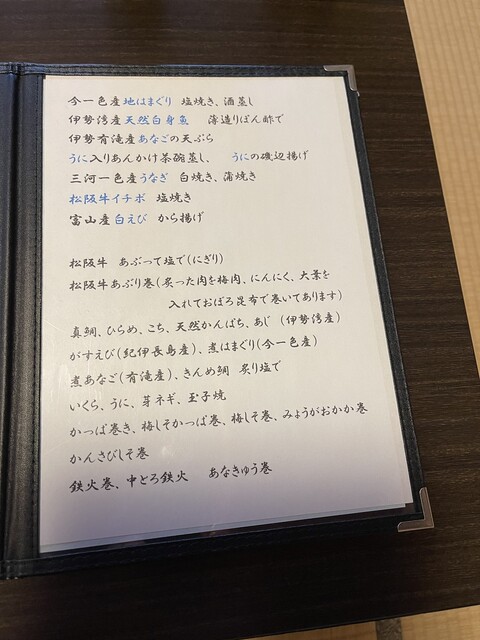 今一色産地はまぐり 塩焼き、酒蒸し
伊勢湾産天然白身魚 薄造りぽん酢で
伊勢有滝産あなごの天ぷら
うに入りあんかけ茶碗蒸し、 うにの磯辺揚げ
三河一色産うなぎ 白焼き、蒲焼き
松阪牛イチボ 塩焼き
富山産白えび から揚げ
松阪牛 あぶって塩で(にぎり)
松阪牛あぶり巻(炙った肉を梅肉、にんにく、大葉を
入れておぼろ昆布で巻いてあります)
真鯛、ひらめ、こち、天然かんぱち、あじ (伊勢湾産)
がすえび(紀伊長島産)、煮はまぐり(今一色産)
煮あなご(有滝産)、きんめ鯛 炙り塩で
いくら、うに、芽ネギ、玉子焼
かっぱ巻き、梅しそかっぱ巻、梅しそ巻、みょうがおかか巻
かんさびしそ巻
鉄火巻、中とろ鉄火 あなきゅう巻